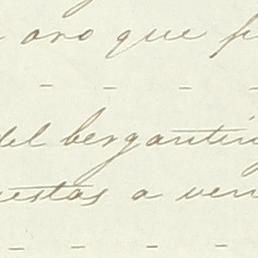 oro que
del bergantin
uestas a ven